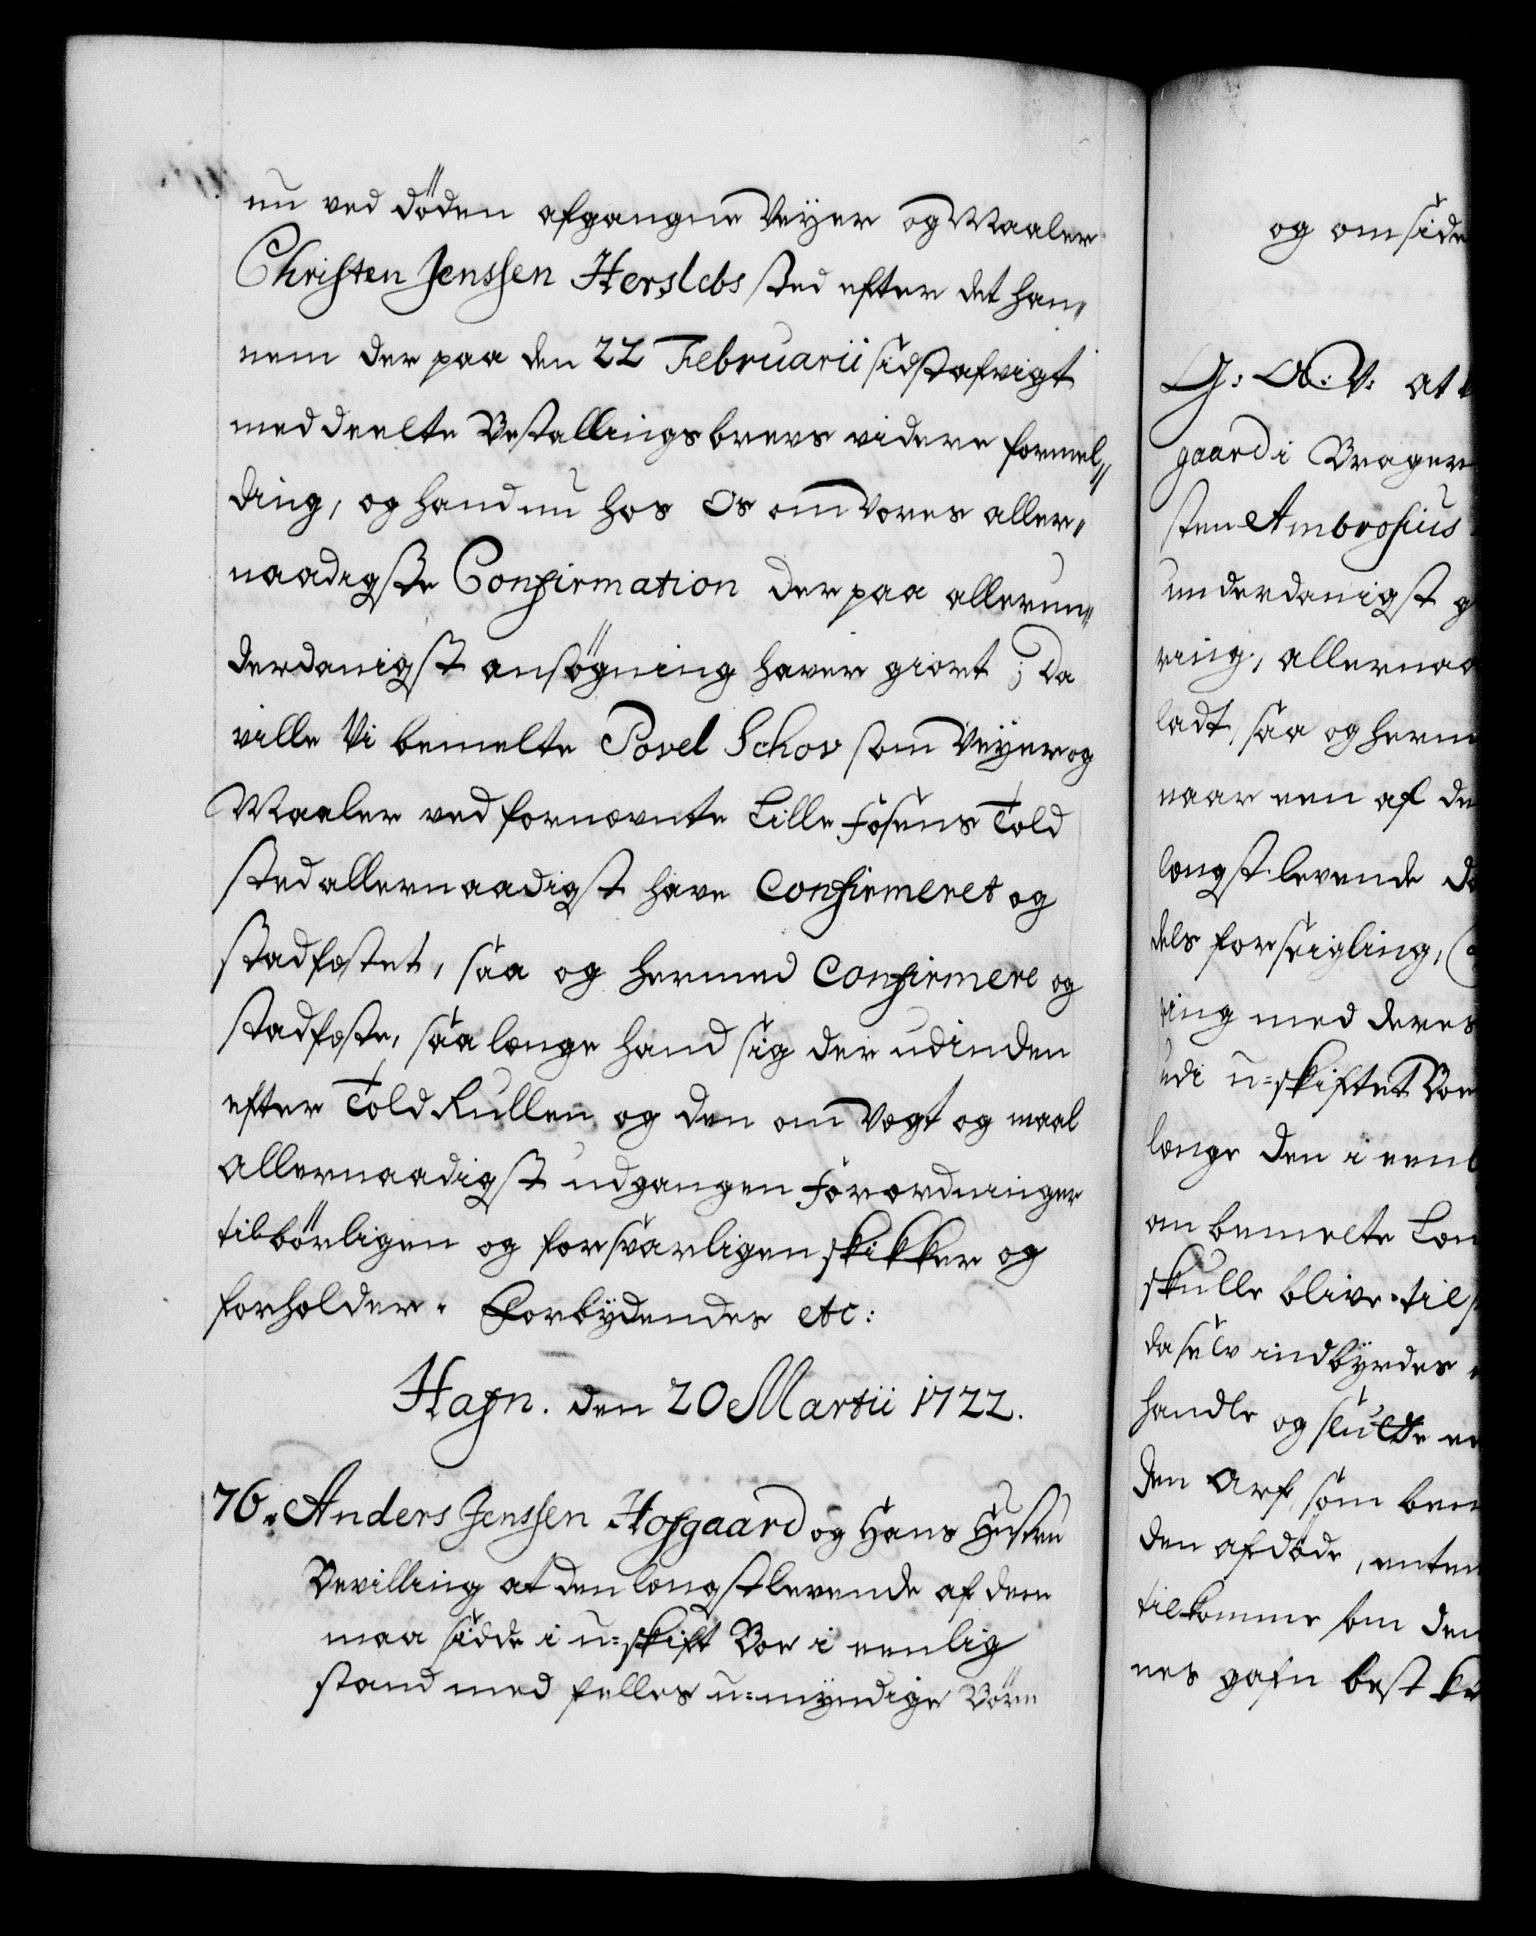 nu ved döden afgangne Veÿer og Maaler
Christen Jenssen Herslebs sted efter det han„
nem der paa den 22 Februarii sidst afvigt
meddeelte Bestallings brevs videre formel„
ding, og hand nu hos Os om Vores aller„
naadigste Confirmation der paa allerun„
derdanigst ansögning haver giort; Da
ville Vi bemelte Povel Schov som Veÿer og
Maaler ved fornævnte Lille Fosens Told
sted allernaadigst have Confirmeret og
stadfæstet, saa og hermed Confirmere og
stadfæste, saa længe hand sig der udinden
efter Told Rullen og den om Vægt og maal
Allernaadigst udgangen Forordninger
tilbörligen og forsvarligen skikker og
forholder. Forbÿdendes etc:
Hafn. den 20 Martii 1722.
76. Anders Jenssen Hofgaard og Hans Hustru
Bevilling at den længstlevende af dem
maa sidde i u=skift Boe i eenlig
stand med fælles u=mÿndige Börn
og omside
G: A: V: At
gaard i Brager
sten Ambrosius
underdanigst
ring, allernaa
ladt, saa og herm
naar een af de
længst levende
dels forseigling,
ting med deres
udi u=skiftet Boe
længe den i eenl
om bemelte
skulle blive til
da selv indbÿrdes
handle og slutte
den Arf som bem
den afdöde, enten
tilkomme som den
nes gafn best